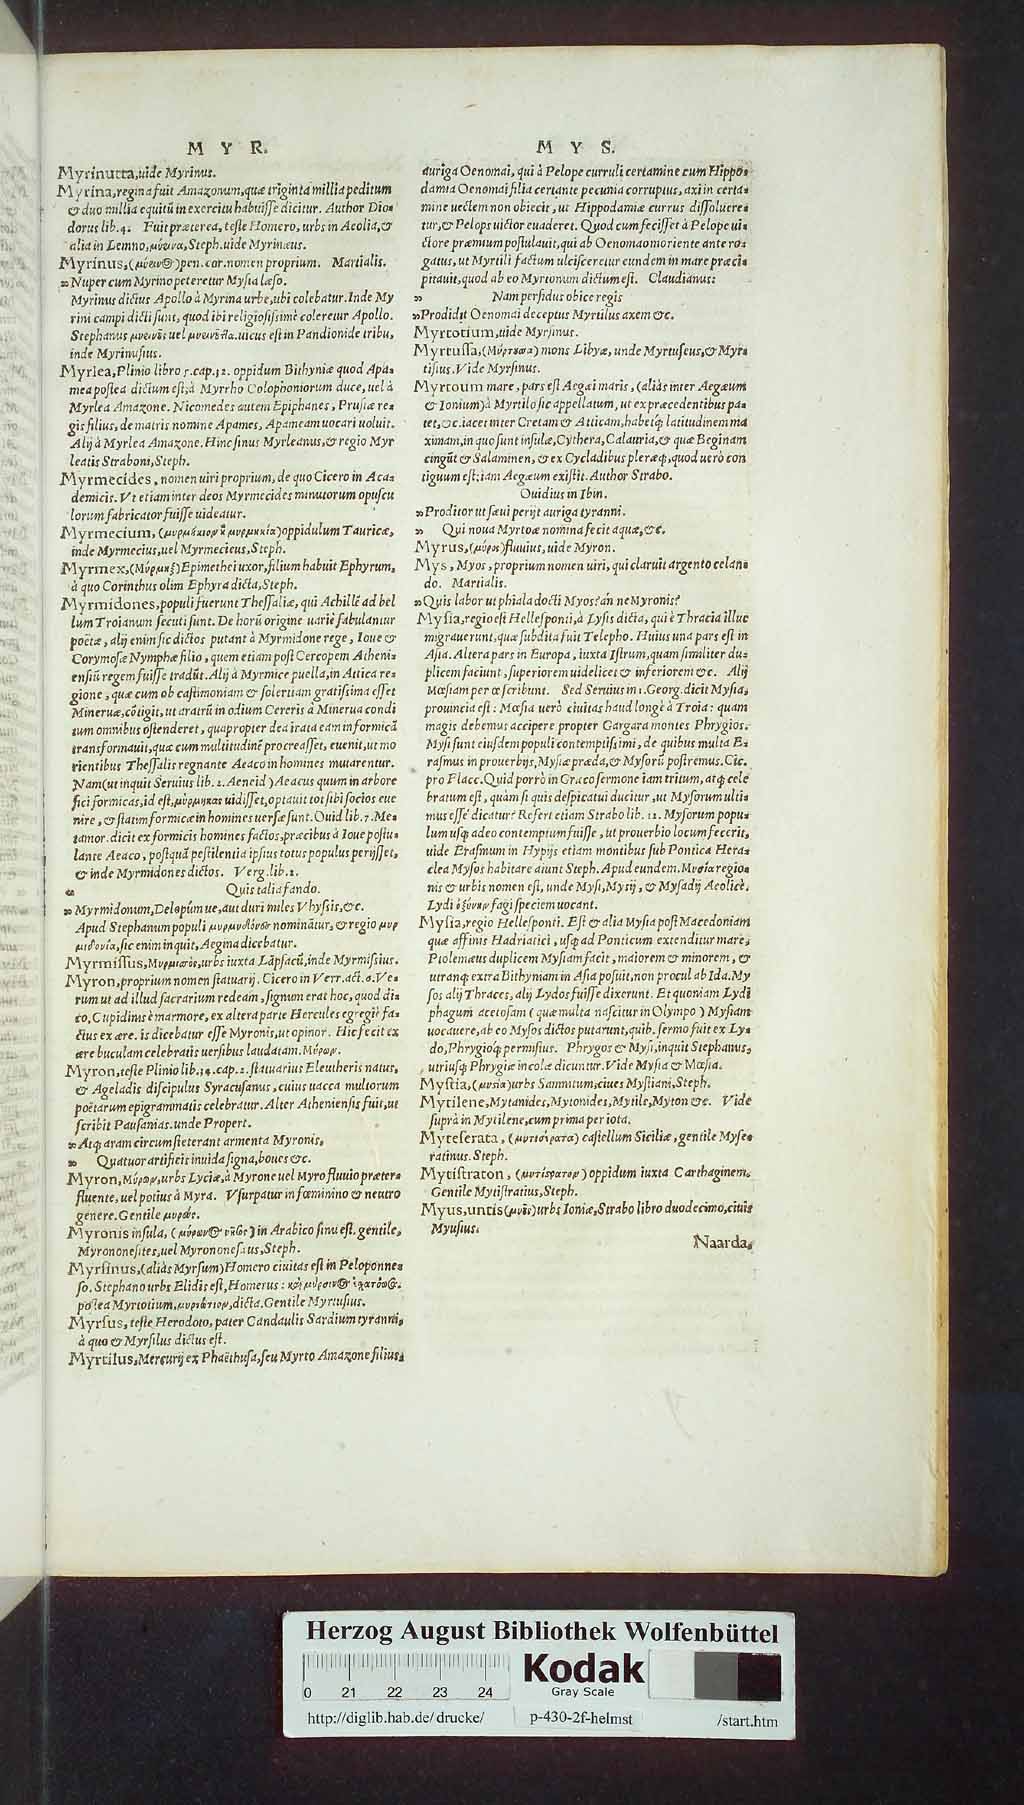 M Y R.
Myrinutta, uide Myrinus.
Myrina, regina fuit Amazonum, quæ triginta millia peditum
& duo millia equitũ in exercitu habuiſſe dicitur. Author Dio-
dorus lib. 4. Fuit præterea, teſte Homero, urbs in Aeolia, &
alia in Lemno, μύρινα, Steph. uide Myrinæus.
Myrinus, pen. cor. nomen proprium. Martialis.
Nuper cum Myrino peteretur Myſia læſo.
Myrinus dictus Apollo à Myrina urbe, ubi colebatur. Inde My
rini campi dicti ſunt, quod ibi religioſiſſimè coleretur Apollo.
Stephanus uel uicus eſt in Pandionide tribu,
inde Myrinuſius.
Myrlea, Plinio libro 5. cap. 32. oppidum Bithyniæ quod Apa-
mea poſtea dictum eſt, à Myrrho Colophoniorum duce, uel à
Myrlea Amazone. Nicomedes autem Epiphanes, Pruſiæ re-
gis filius, de matris nomine Apames, Apameam uocari uoluit.
Alij à Myrlea Amazone. Hinc ſinus Myrleanus, & regio Myr
leatis Straboni, Steph.
Myrmecides, nomen uiri proprium, de quo Cicero in Aca-
demicis. Vt etiam inter deos Myrmecides minutorum opuſcu
lorum fabricator fuiſſe uideatur.
Myrmecium, oppidulum Tauricæ,
inde Myrmecius, uel Myrmecieus, Steph.
Myrmex, (Μύρμηξ) Epimethei uxor, filium habuit Ephyrum,
à quo Corinthus olim Ephyra dicta, Steph.
Myrmidones, populi fuerunt Theſſaliæ, qui Achillẽ ad bel
lum Troianum ſecuti ſunt. De horũ origine uariè fabulantur
poëtæ, alij enim ſic dictos putant à Myrmidone rege, Ioue &
Corymoſæ Nymphæ filio, quem etiam poſt Cercopem Atheni-
enſiũ regem fuiſſe tradũt. Alij à Myrmice puella, in Attica re-
gione, quæ cum ob caſtimoniam & ſolertiam gratiſſima eſſet
Mineruæ, cõtigit, ut aratrũ in odium Cereris à Minerua condi
tum omnibus oſtenderet, quapropter dea irata eam in formicã
transformauit, quæ cum multitudinẽ procreaſſet, euenit, ut mo
rientibus Theſſalis regnante Aeaco in homines mutarentur.
Nam (ut inquit Seruius lib. 2. Aeneid) Aeacus quum in arbore
fici formicas, id eſt, μύρμηκας uidiſſet, optauit tot ſibi ſocios eue
nire, & ſtatim formicæ in homines uerſæ ſunt. Ouid lib. 7. Me-
tamor. dicit ex formicis homines factos, præcibus à Ioue poſtu-
lante Aeaco, poſtquã peſtilentia ipſius totus populus perijſſet,
& inde Myrmidones dictos. Verg. lib. 2.
Quis talia fando.
Myrmidonum, Dolopũm ue, aut duri miles Vlyſſis, &c.
Apud Stephanum populi nominãtur, & regio μυρ
μιδονία, ſic enim inquit, Aegina dicebatur.
Myrmiſſus, urbs iuxta Lãpſacũ, inde Myrmiſsius.
Myron, proprium nomen ſtatuarij. Cicero in Verr. act. 6. Ve-
rum ut ad illud ſacrarium redeam, ſignum erat hoc, quod di-
co, Cupidinis è marmore, ex altera parte Hercules egregiè fa-
ctus ex ære. is dicebatur eſſe Myronis, ut opinor. Hic fecit ex
ære buculam celebratis uerſibus laudatam. Μύρων.
Myron, teſte Plinio lib. 34. cap. 2. ſtatuarius Eleutheris natus,
& Ageladis diſcipulus Syracuſanus, cuius uacca multorum
poëtarum epigrammatis celebratur. Alter Athenienſis fuit, ut
ſcribit Pauſanias. unde Propert.
Atq; aram circum ſteterant armenta Myronis,
Quatuor artificis inuida ſigna, boues &c.
Myron, Μύρων, urbs Lyciæ, à Myrone uel Myro fluuio præter-
fluente, uel potius à Myra. Vſurpatur in fœminino & neutro
genere. Gentile
Myronis inſula, in Arabico ſinu eſt. gentile,
Myrononeſites, uel Myrononeſius, Steph.
Myrſinus, (aliàs Myrſum) Homero ciuitas eſt in Peloponne-
ſo. Stephano urbs Elidis eſt, Homerus:
poſtea Myrtotium, dicta. Gentile Myrtuſius.
Myrſus, teſte Herodoto, pater Candaulis Sardium tyranni,
à quo & Myrſilus dictus eſt.
Myrtilus, Mercurij ex Phaëthuſa, ſeu Myrto Amazone filius,
M Y S.
auriga Oenomai, qui à Pelope curruli certamine cum Hippo-
damia Oenomai filia certante pecunia corruptus, axi in certa-
mine uectem non obiecit, ut Hippodamiæ currus diſſoluere-
tur, & Pelops uictor euaderet. Quod cum feciſſet à Pelope ui-
ctore præmium poſtulauit, qui ab Oenomao moriente ante ro-
gatus, ut Myrtili factum ulciſceretur eundem in mare præci-
pitauit, quod ab eo Myrtonum dictum eſt. Claudianus:
Nam perfidus obice regis
Prodidit Oenomai deceptus Myrtilus axem &c.
Myrtotium, uide Myrſinus.
Myrtuſſa, (Μύρτουσσα) mons Libyæ, unde Myrtuſeus, & Myr-
tiſius. Vide Myrſinus.
Myrtoum mare, pars eſt Aegæi maris, (aliàs inter Aegæum
& Ionium) à Myrtilo ſic appellatum, ut ex præcedentibus pa-
tet, &c. iacet inter Cretam & Atticam, habetq; latitudinem ma
ximam, in quo ſunt inſulæ, Cythera, Calauria, & quæ Æginam
cingũt & Salaminen, & ex Cycladibus pleræq;, quod uerò con
tiguum eſt, iam Aegæum exiſtit. Author Strabo.
Ouidius in Ibin.
Proditor ut ſæui perijt auriga tyranni.
Qui noua Myrtoæ nomina fecit aquæ, &c.
Myrus, (μύρος) fluuius, uide Myron.
Mys, Myos, proprium nomen uiri, qui claruit argento celan-
do. Martialis.
Quis labor ut phiala docti Myos? án ne Myronis?
Myſia, regio eſt Helleſponti, à Lyſis dicta, qui è Thracia illuc
migrauerunt, quæ ſubdita fuit Telepho. Huius una pars eſt in
Aſia. Altera pars in Europa, iuxta Iſtrum, quam ſimiliter du-
plicem faciunt, ſuperiorem uidelicet & inferiorem &c. Alij
Mœſiam per œ ſcribunt. Sed Seruius in 1. Georg. dicit Myſia,
prouincia eſt: Mœſia uerò ciuitas haud longè à Troia: quam
magis debemus accipere propter Gargara montes Phrygios.
Myſi ſunt eiuſdem populi contemptiſſimi, de quibus multa E-
raſmus in prouerbijs, Myſiæ præda, & Myſorũ poſtremus. Cic.
pro Flacc. Quid porrò in Græco ſermone iam tritum, atq; cele
bratum eſt, quàm ſi quis deſpicatui ducitur, ut Myſorum ulti-
mus eſſe dicatur? Refert etiam Strabo lib. 12. Myſorum popu-
lum uſq; adeo contemptum fuiſſe, ut prouerbio locum fecerit,
uide Eraſmum in Hypijs etiam montibus ſub Pontica Hera-
clea Myſos habitare aiunt Steph. Apud eundem. Μυσία regio-
nis & urbis nomen eſt, unde Myſi, Myſij, & Myſadij Aeolicè.
Lydi fagi ſpeciem uocant.
Myſia, regio Helleſponti. Eſt & alia Myſia poſt Macedoniam
quæ affinis Hadriatici, uſq; ad Ponticum extenditur mare,
Ptolemæus duplicem Myſiam facit, maiorem & minorem, &
utranq; extra Bithyniam in Aſia poſuit, non procul ab Ida. My
ſos alij Thraces, alij Lydos fuiſſe dixerunt. Et quoniam Lydi
phagum acetoſam (quæ multa naſcitur in Olympo) Myſiam
uocauere, ab eo Myſos dictos putarunt, quib. ſermo fuit ex Ly-
do, Phrygioq; permiſtus. Phrygos & Myſi, inquit Stephanus,
utriuſq; Phrygiæ incolæ dicuntur. Vide Myſia & Mœſia.
Myſtia, (μυστία) urbs Samnitum, ciues Myſtiani, Steph.
Mytilene, Mytanides, Mytonides, Mytile, Myton &c. Vide
ſuprà in Mytilene, cum prima per iota.
Myteſerata, caſtellum Siciliæ, gentile Myſe-
ratinus. Steph.
Mytiſtraton, (μυτίστρατον) oppidum iuxta Carthaginem.
Gentile Mytiſtratius, Steph.
Myus, untis (μυοῦς) urbs Ioniæ, Strabo libro duodecimo, ciuis
Myuſius.
Naarda,
Herzog August Bibliothek Wolfenbüttel
Kodak
Gray Scale
0 21 22 23 24
http://diglib.hab.de/drucke/ p-430-2f-helmst /start.htm